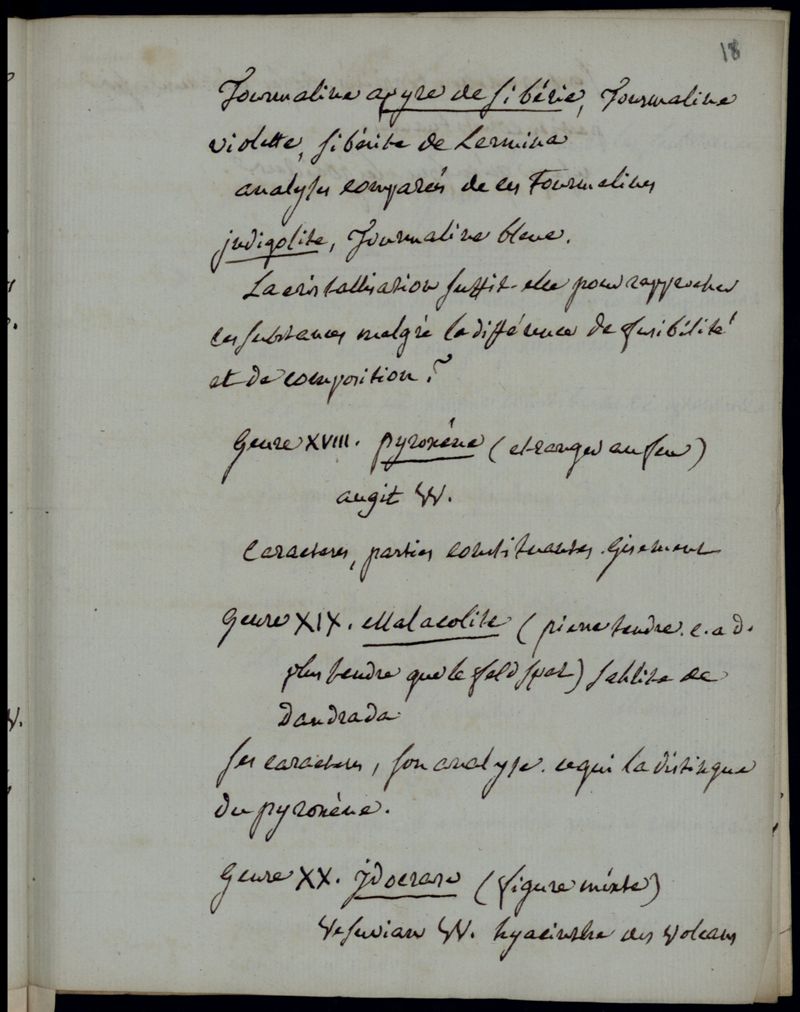 18
Tourmaline apyre de sibérie, Tourmaline
violette, sibérite de Lermina
analyses comparées de ces Tourmalines
jndigolite, Tourmaline bleue.
La cristallisation suffit-elle pour rapprocher
ces substances malgré la différence de fusibilité
et de composition?
Genre XVIII. pyroxéne (etranger au feu)
augit W.
Caracteres, parties constituantes. Gisement
Genre XIX. Malacolite (pierre tendre. c. a d.
plus tendre que le feld spat) sahlite de
Dandrada
ses caracteres, son analyse. ce qui la distingue
du pyroxéne.
Genre XX. jdocrase (figure mixte)
Vesuvian W. hyacinthe des Volcans